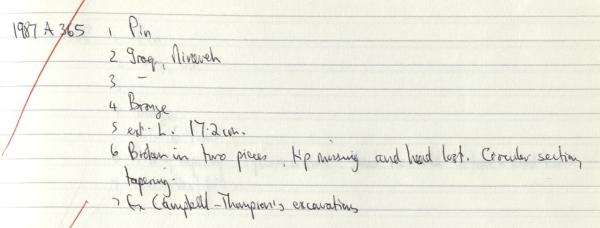 1987 A 365 1 Pin
2 Iraq, Nineveh
3 –
4 Bronze
5 ext. L. 17.2cm.
6 Broken in two pieces, tip missing and head lost. Circular section,
tapering.
7 Ex Campbell-Thompson's excavations